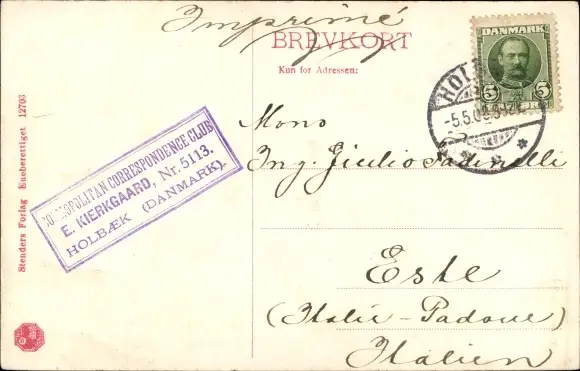 Imprimé
BREVKORT
Kun for Adressen:
DANMARK
5 5
HOL
-5.5.0
Mons
Ing. Giulio
Este
(Italie-Padoue)
Italien
COSMOPOLITAN CORRESPONDENCE CLUB
E. KIERKGAARD, Nr. 5113.
HOLBÆK (DANMARK).
Stenders Forlag Eneberettiget 12703